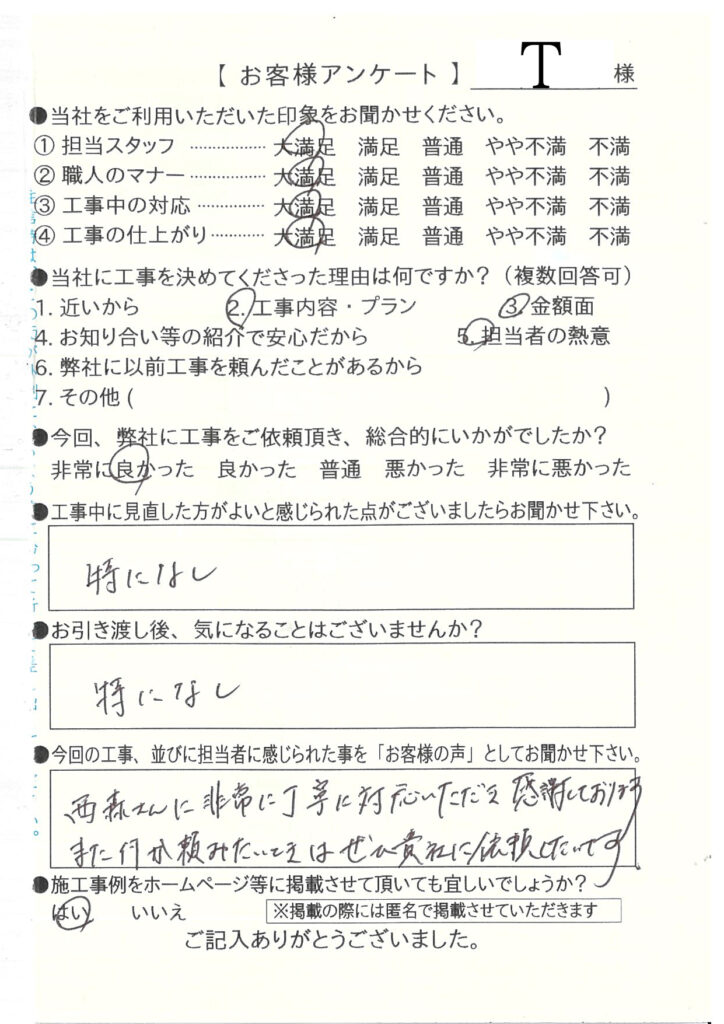 【 お客様アンケート 】 T 様
●当社をご利用いただいた印象をお聞かせください。
① 担当スタッフ ……………… 大満足 満足 普通 やや不満 不満
② 職人のマナー ……………… 大満足 満足 普通 やや不満 不満
③ 工事中の対応 ……………… 大満足 満足 普通 やや不満 不満
④ 工事の仕上がり …………… 大満足 満足 普通 やや不満 不満
●当社に工事を決めてくださった理由は何ですか？（複数回答可）
1. 近いから 2. 工事内容・プラン 3. 金額面
4. お知り合い等の紹介で安心だから 5. 担当者の熱意
6. 弊社に以前工事を頼んだことがあるから
7. その他 ( )
●今回、弊社に工事をご依頼頂き、総合的にいかがでしたか？
非常に良かった 良かった 普通 悪かった 非常に悪かった
●工事中に見直した方がよいと感じられた点がございましたらお聞かせ下さい。
特になし
●お引き渡し後、気になることはございませんか？
特になし
●今回の工事、並びに担当者に感じられた事を「お客様の声」としてお聞かせ下さい。
西森さんに非常に丁寧に対応いただき感謝しております
また何か頼みたいときはぜひ貴社に依頼したいです
●施工事例をホームページ等に掲載させて頂いても宜しいでしょうか？
はい いいえ ※掲載の際には匿名で掲載させていただきます
ご記入ありがとうございました。